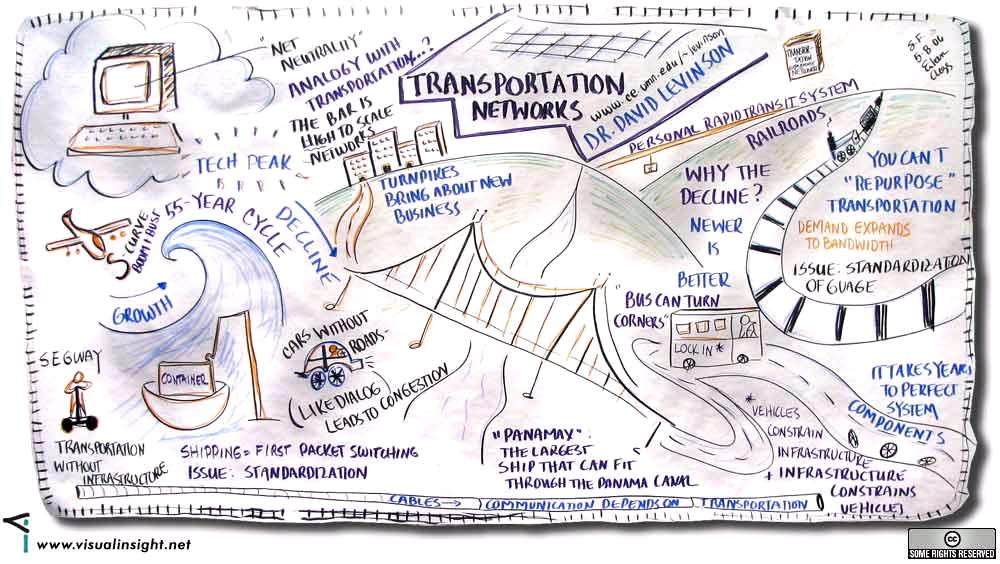 "NET
NEUTRALITY"
ANALOGY WITH
TRANSPORTATION...?
THE BAR IS
HIGH TO SCALE
NETWORKS
TRANSPORTATION
NETWORKS
www.ce.umn.edu/~levinson
DR. DAVID LEVINSON
S.F.
5.8.06
TECH PEAK
55-YEAR CYCLE
DECLINE
S CURVE
BOOM & BUST
GROWTH
TURNPIKES
BRING ABOUT NEW
BUSINESS
PERSONAL RAPID TRANSIT SYSTEM
RAILROADS
WHY THE
DECLINE?
NEWER
IS
BETTER
YOU CAN'T
"REPURPOSE"
TRANSPORTATION
DEMAND EXPANDS
TO BANDWIDTH
ISSUE: STANDARDIZATION
OF GUAGE
"BUS CAN TURN
CORNERS"
LOCK IN*
SEGWAY
TRANSPORTATION
WITHOUT
INFRASTRUCTURE
CONTAINER
SHIPPING = FIRST PACKET SWITCHING
ISSUE: STANDARDIZATION
CARS WITHOUT
ROADS-
(LIKE DIALOG
LEADS TO CONGESTION
"PANAMAX":
THE LARGEST
SHIP THAT CAN FIT
THROUGH THE PANAMA CANAL
*VEHICLES
CONSTRAIN
INFRASTRUCTURE
+ INFRASTRUCTURE
CONSTRAINS
VEHICLES
IT TAKES YEARS
TO PERFECT
SYSTEM
COMPONENTS
CABLES → COMMUNICATION DEPENDS ON TRANSPORTATION
www.visualinsight.net
cc
SOME RIGHTS RESERVED